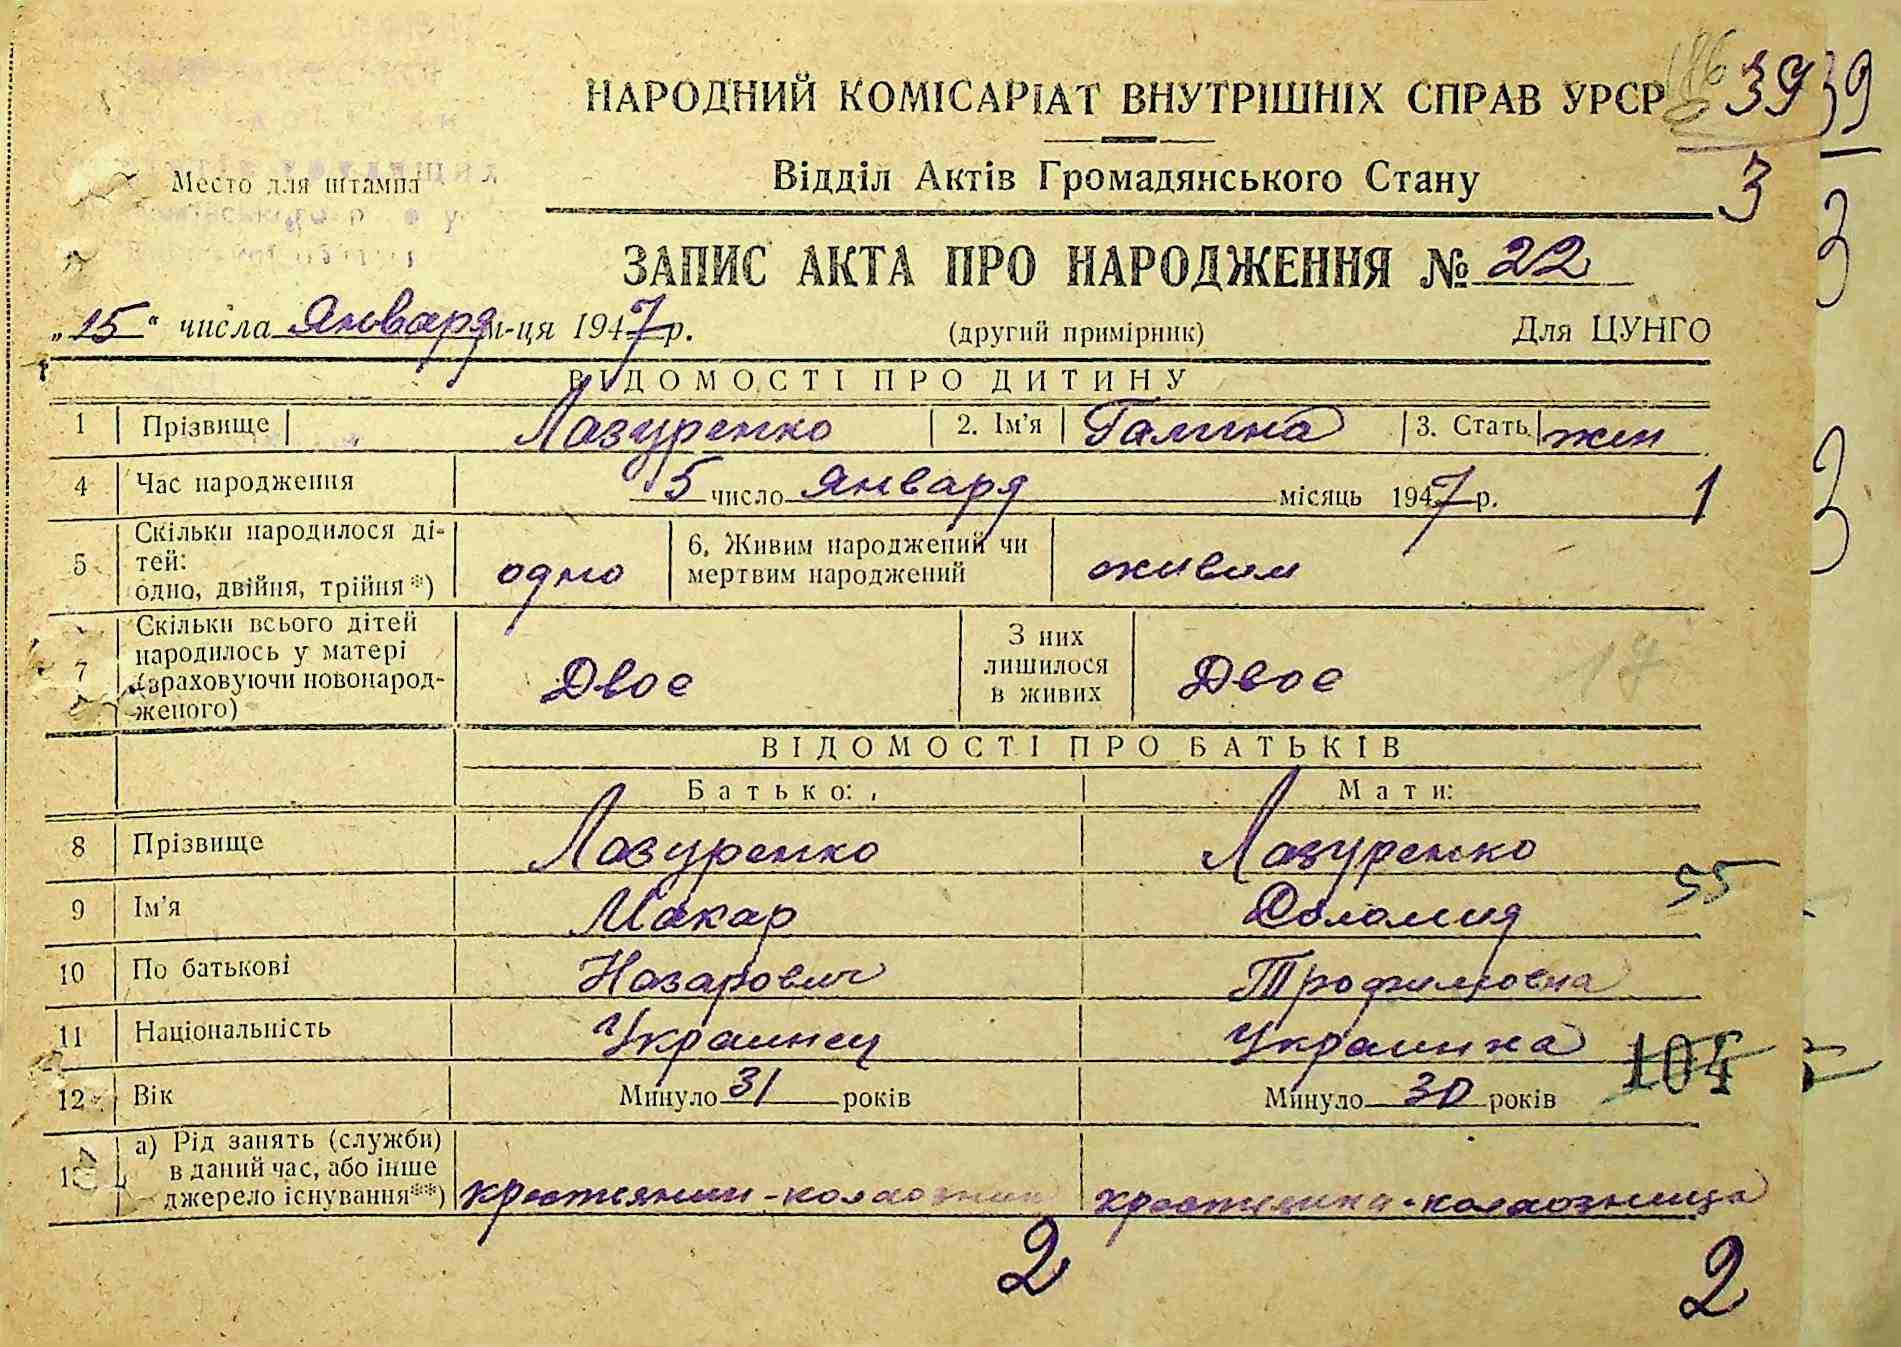 НАРОДНИЙ КОМІСАРІАТ ВНУТРІШНІХ СПРАВ УРСР 39 39
Відділ Актів Громадянського Стану 3 3
Место для штампа
ЗАПИС АКТА ПРО НАРОДЖЕННЯ № 22
„15“ числа Января м-ця 1947 р. (другий примірник) Для ЦУНГО
ВІДОМОСТІ ПРО ДИТИНУ
1 Прізвище Лазуренко 2. Ім’я Галина 3. Стать жен 3
4 Час народження 5 число Января місяць 1947 р. 1
5 Скільки народилося ді-
тей:
одно, двійня, трійня*) одно 6. Живим народжений чи
мертвим народжений живым
7 Скільки всього дітей
народилось у матері
(враховуючи новонарод-
женого) Двое З них
лишилося
в живих Двое 17
ВІДОМОСТІ ПРО БАТЬКІВ
Батько: Мати:
8 Прізвище Лазуренко Лазуренко
55
9 Ім’я Макар Соломия
10 По батькові Назарович Трофимовна
11 Національність Украинец Украинка
104
12 Вік Минуло 31 років Минуло 30 років
13 а) Рід занять (служби)
в даний час, або інше
джерело існування**) крестянин-колхозник крестянка-колхозница
2 2